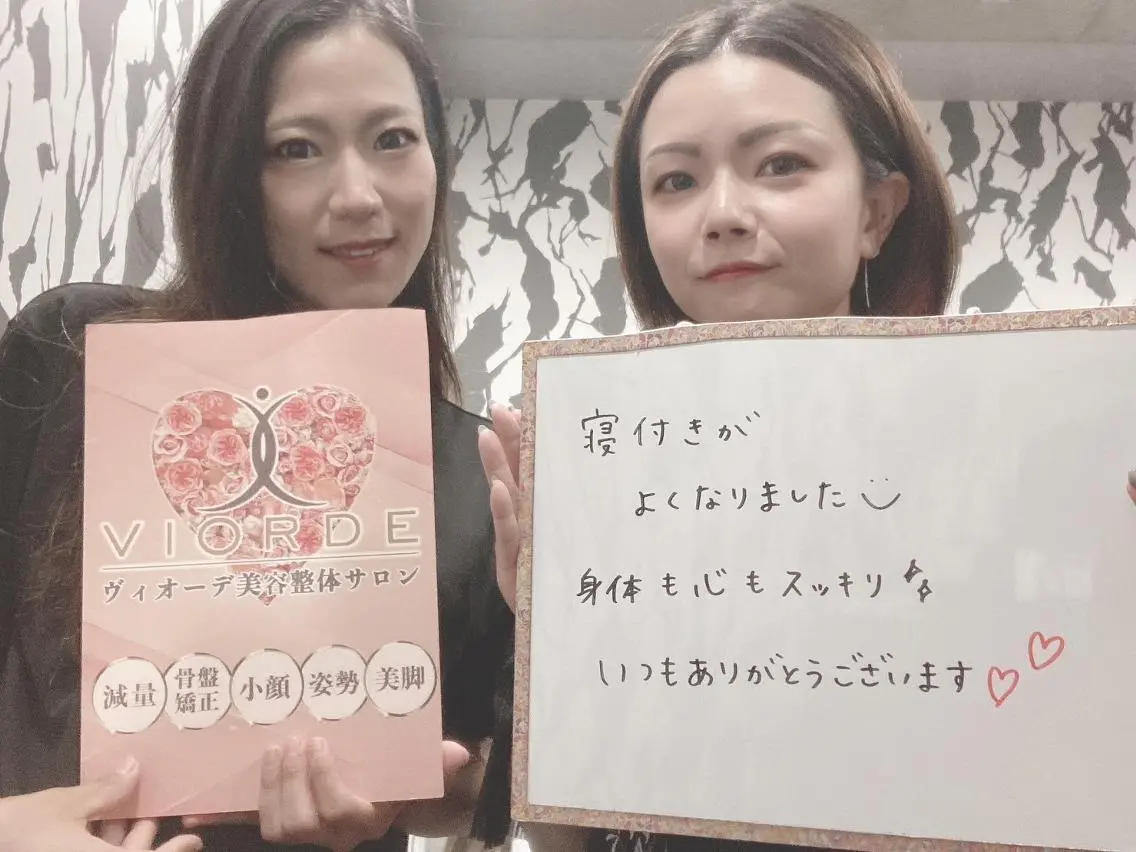 VIORDE
ヴィオーデ美容整体サロン
減量
骨盤
矯正
小顔
姿勢
美脚
寝付きが
よくなりました
身体も心もスッキリ
いつもありがとうございます